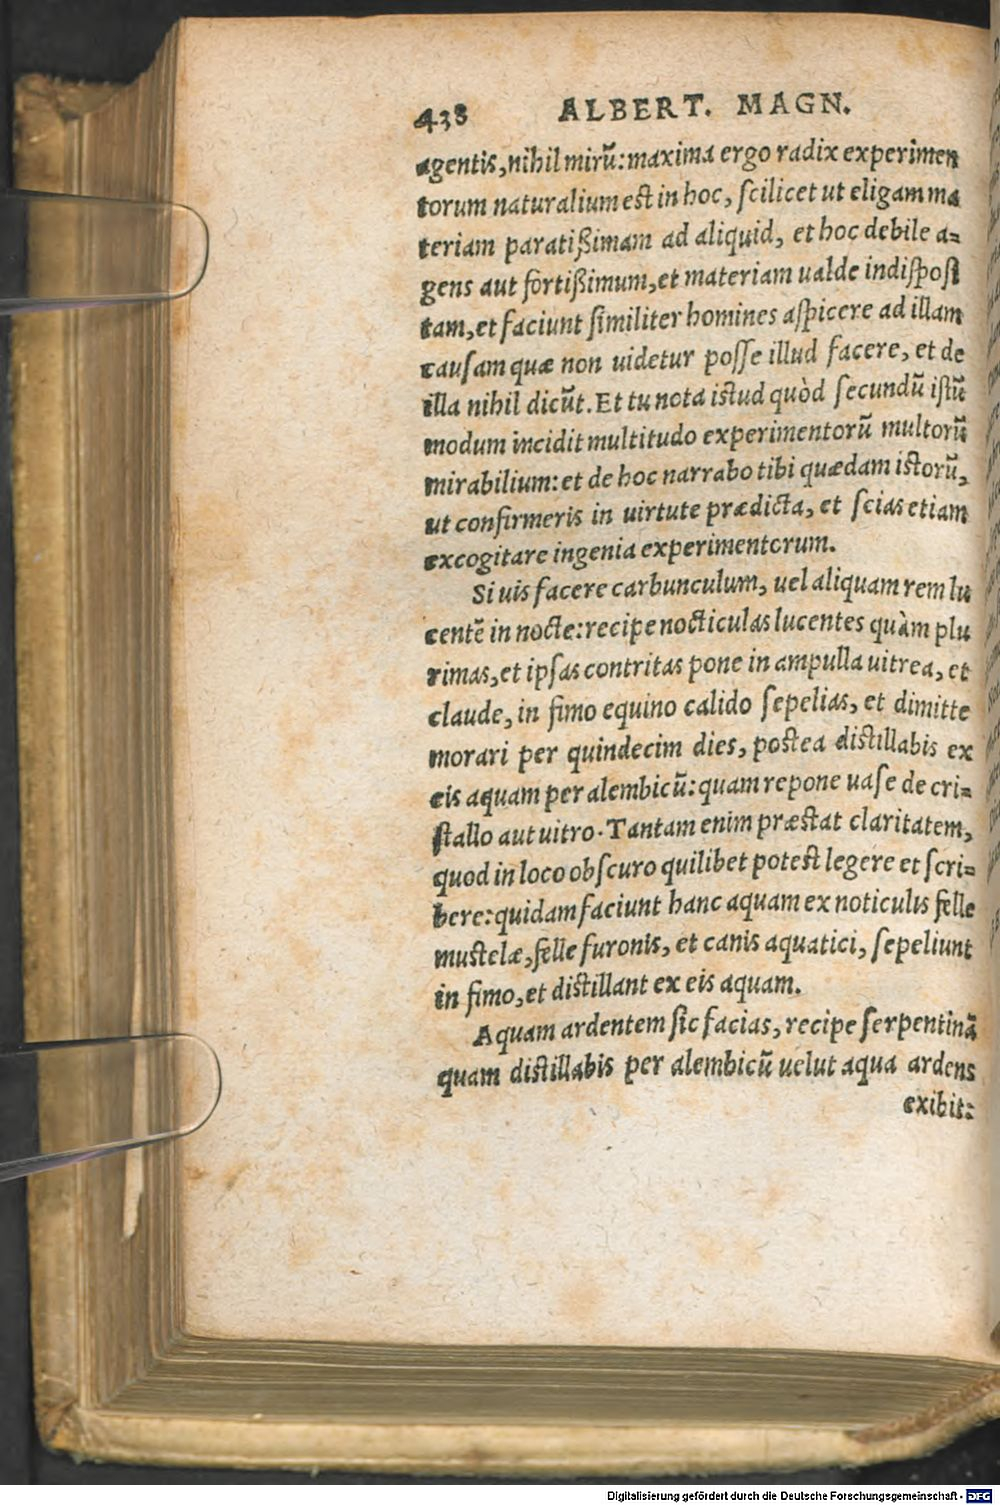 438 ALBERT. MAGN.
agentis, nihil mirũ: maxima ergo radix experimen
torum naturalium est in hoc, ſcilicet ut eligam ma
teriam paratißimam ad aliquid, et hoc debile a=
gens aut fortißimum, et materiam ualde indiſpoſi
tam, et faciunt ſimiliter homines aſpicere ad illam
cauſam quæ non uidetur poſſe illud facere, et de
illa nihil dicũt. Et tu nota istud quòd ſecundũ iſtũ
modum incidit multitudo experimentorũ multorũ
mirabilium: et de hoc narrabo tibi quædam istorũ,
ut confirmeris in uirtute prædicta, et ſcias etiam
excogitare ingenia experimentorum.
Si uis facere carbunculum, uel aliquam rem lu
centẽ in nocte: recipe nocticulas lucentes quàm plu
rimas, et ipſas contritas pone in ampulla uitrea, et
claude, in fimo equino calido ſepelias, et dimitte
morari per quindecim dies, postea distillabis ex
eis aquam per alembicũ: quam repone uaſe de cri=
ſtallo aut uitro. Tantam enim præstat claritatem,
quod in loco obſcuro quilibet potest legere et ſcri=
bere: quidam faciunt hanc aquam ex noticulis felle
mustelæ, felle furonis, et canis aquatici, ſepeliunt
in fimo, et distillant ex eis aquam.
Aquam ardentem ſic facias, recipe ſerpentinã
quam distillabis per alembicũ uelut aqua ardens
exibit:
Digitalisierung gefördert durch die Deutsche Forschungsgemeinschaft - DFG